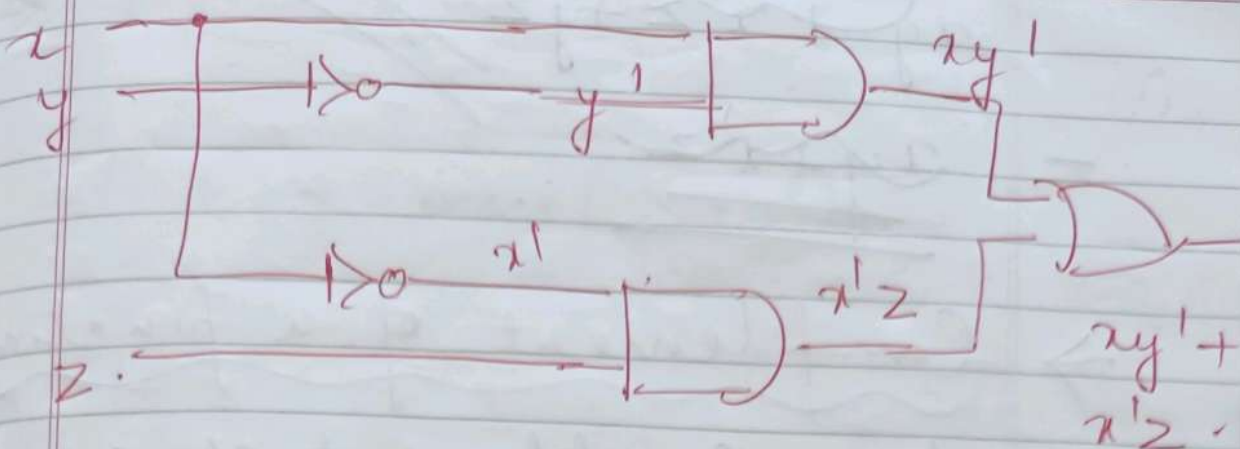 x
xy'
y
y'
x'
x'z
z.
xy' +
x'z.